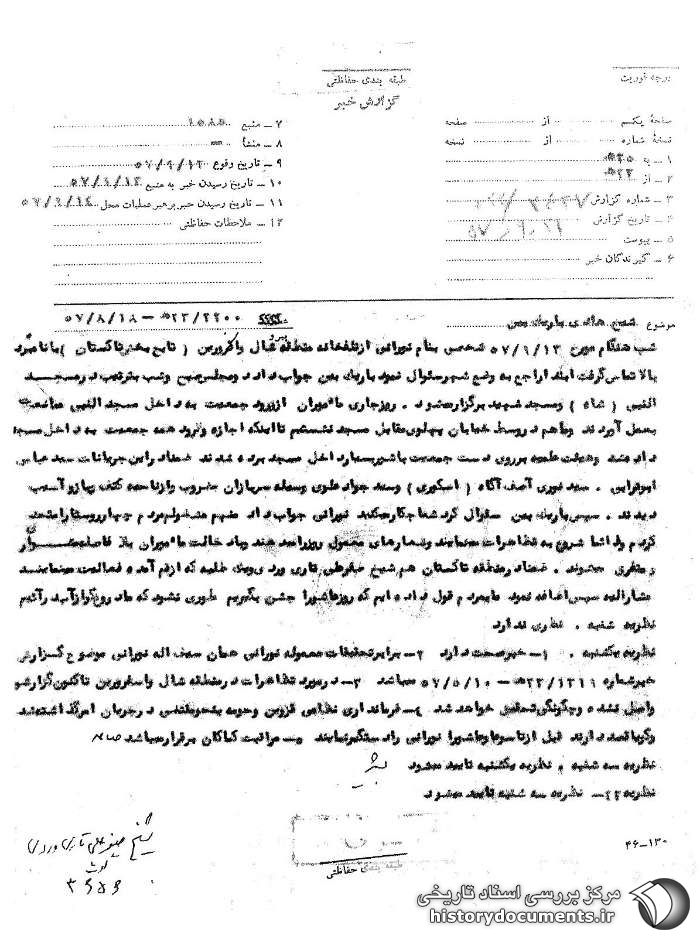 طبقه بندی حفاظتی
درجه فوریت
گزارش خبر
صفحهٔ یکم از صفحه
نسخهٔ شماره از نسخه
۱ – به ۵۳۵*
۲ – از ۵۲۲*
۳ – شماره گزارش
۴ – تاریخ گزارش
۵ – پیوست
۶ – گیرندگان خبر
۷ – منبع ۱۵۸۵
۸ – منشأ
۹ – تاریخ وقوع ۵۷/۹/۱۳
۱۰ – تاریخ رسیدن خبر به منبع ۵۷/۹/۱۳
۱۱ – تاریخ رسیدن خبر برهبر عملیات محل ۵۷/۹/۱۴
۱۲ – ملاحظات حفاظتی
موضوع شیخ هادی باریک بین ۵۷/۸/۱۸ – ۲۲/۲۲۰۰*
شب هنگام مورخ ۵۷/۹/۱۳ شخصی بنام نورانی از تلفخانه منطقه شال واقع در قزوین (تابع بخش تاکستان) با نامبرد
بالا تماس گرفت ابتدا راجع به وضع شهر سئوال نمود باریک بین جواب داد دو مجلس صبح وشب بترتیب در مسجد
النبی (شاه) ومسجد شهید برگزار میشود . روز جاری مأموران از ورود جمعیت به داخل مسجد النبی ممانعت
بعمل آوردند وماهم در وسط خیابان پهلوی مقابل مسجد نشستیم تا اینکه اجازه ورود همه جمعیت به داخل مسجد
دادند وهیئت علمیه بر روی دست جمعیت با شور بسیار داخل مسجد برده شدند ضمناً در این جریانات سید عباس
ابوترابی . سید نوری آصف آگاه (اسکوری) وسید جواد علوی وسیله سربازان مضروب واز ناحیه کتف وبازو آسیب
دیدند . سپس باریک بین سئوال کرد شما چکار میکنید نورانی جواب داد منهم مشغولم مردم چهار روستا را متحد
کردم ولذا شروع به تظاهرات مینمایند وشعارهای معمول روز را میدهند وبا دخالت مأموران بلا فاصله فرار
ومتفرق میشوند . ضمناً در منطقه تاکستان هم شیخ صفرعلی تاری وردی ویک طلبه که از قم آمده فعالیت مینمایند
مشارالیه سپس اضافه نمود ما بمردم قول داده ایم که روز عاشورا جشن بگیریم طوری نشود که ما دروغگو از آب درآئیم
نظریه شنبه . نظری ندارد
نظریه یکشنبه . ۱– خبر صحت دارد ۲– برابر تحقیقات معموله نورانی همان سیف اله نورانی موضوع گزارش
خبر شماره ۲۲/۱۳۱۱* – ۵۷/۵/۱۰ میباشد ۳– در مورد تظاهرات در منطقه شال واسفرورین تاکنون گزارشی
واصل نشده وچگونگی تحقیق خواهد شد ۴– فرمانداری نظامی قزوین وحومه بنحو مقتضی در جریان امر گذاشته شد
وگویا قصد دارند قبل از تاسوعا وعاشورا نورانی را دستگیر نمایند ۵– مراقبت کماکان برقرار میباشد
نظریه سه شنبه . نظریه یکشنبه تایید میشود
نظریه ۲۲– نظریه سه شنبه تایید میشود
شیخ صفرعلی تاری وردی
۳۶۵۶
۴۶–۱۳۰
طبقه بندی حفاظتی
مرکز بررسی اسناد تاریخی
historydocuments.ir